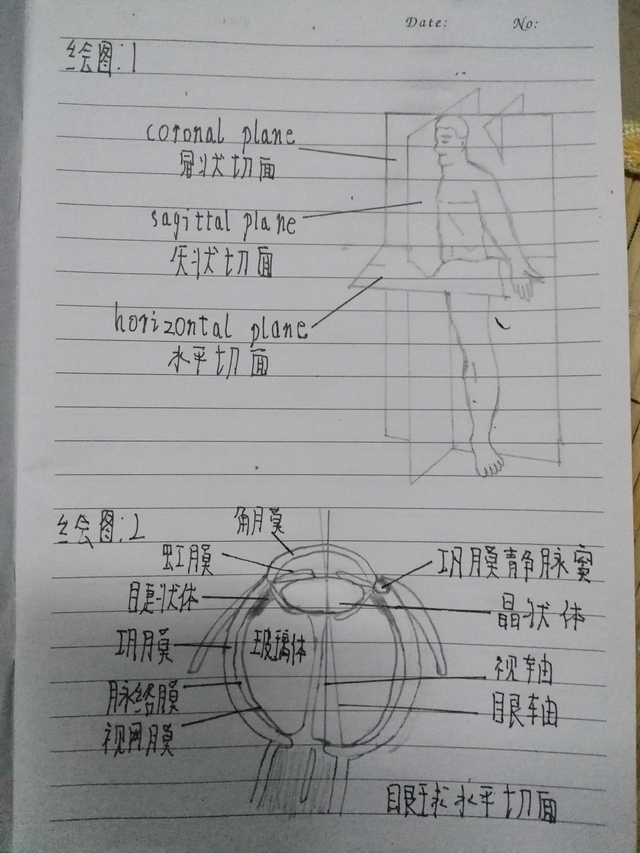 Date: No:
绘图:1
coronal plane
冠状切面
sagittal plane
矢状切面
horizontal plane
水平切面
绘图:2
角膜
虹膜
巩膜静脉窦
睫状体
晶状体
巩膜
玻璃体
视轴
脉络膜
眼轴
视网膜
眼球水平切面